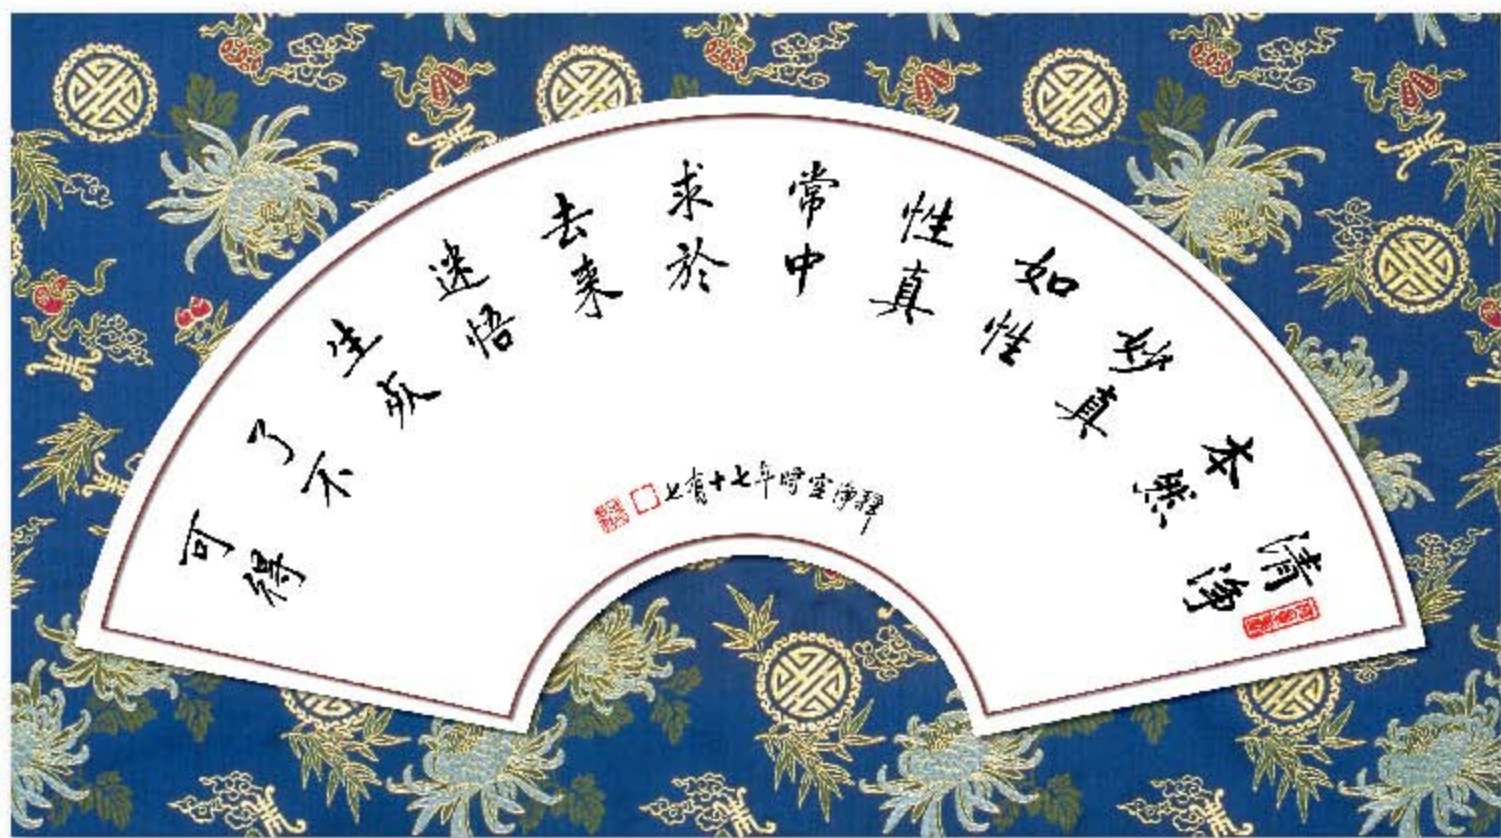 清淨
本然
妙真
如性
性真
常中
求於
去来
迷悟
生死
了不
可得
釋淨空時年七十有七